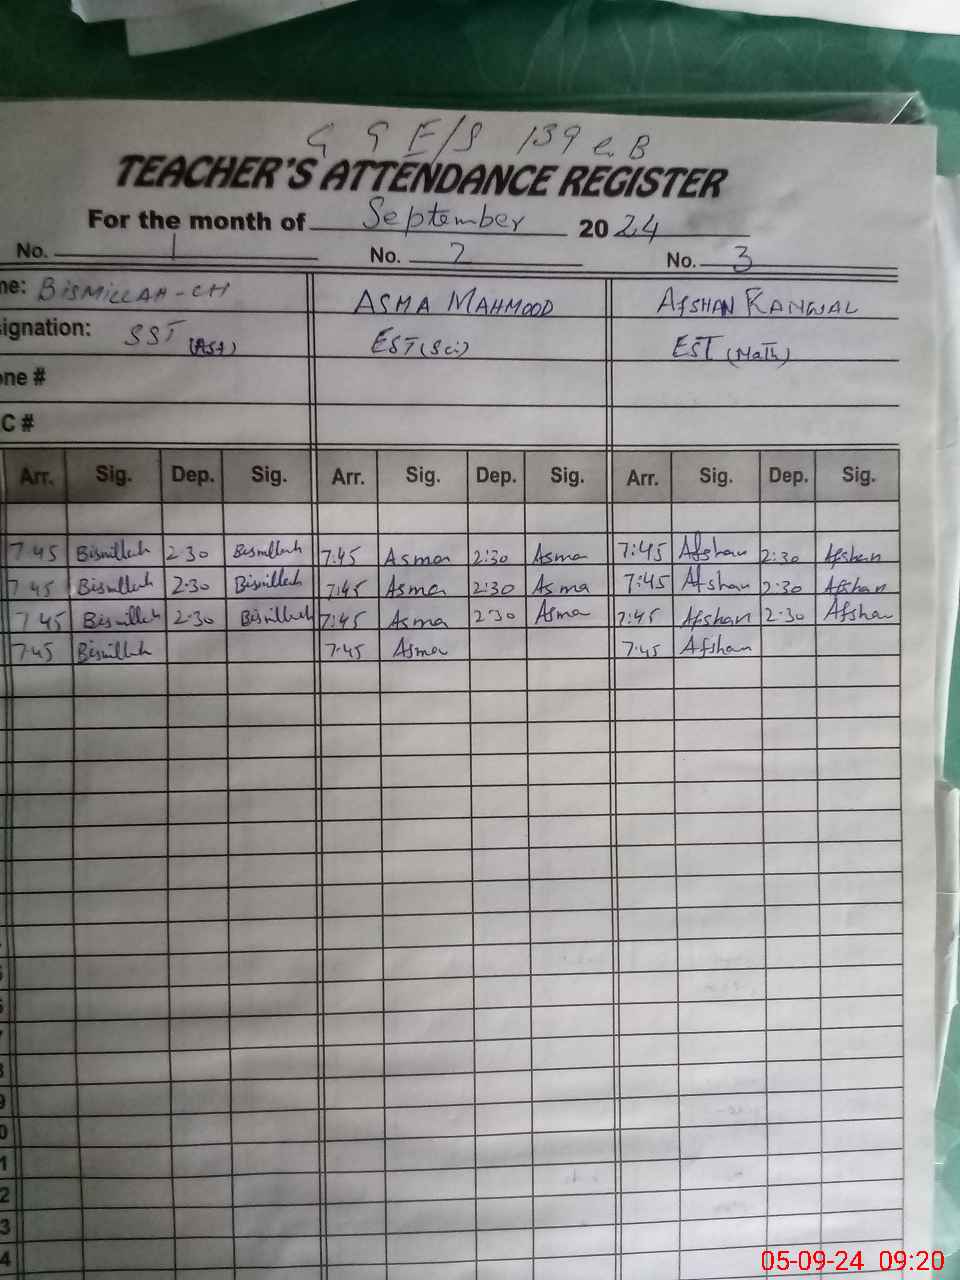 G G E/S 139 e.B
TEACHER'S ATTENDANCE REGISTER
For the month of September 2024
No. 1 No. 2 No. 3
me: BISMILLAH-CH ASMA MAHMOOD AfSHAN KANWAL
signation: SST EST (Sci) EST (MaTh)
one #
C #
Arr. Sig. Dep. Sig. Arr. Sig. Dep. Sig. Arr. Sig. Dep. Sig.
7:45 Bismillah 2:30 Bismillah 7:45 Asma 2:30 Asma 7:45 Afshan 2:30 Afshan
7:45 Bismillah 2:30 Bismillah 7:45 Asma 2:30 Asma 7:45 Afshan 2:30 Afshan
7:45 Bismillah 2:30 Bismillah 7:45 Asma 2:30 Asma 7:45 Afshan 2:30 Afshan
7:45 Bismillah 7:45 Asma 7:45 Afshan
05-09-24 09:20